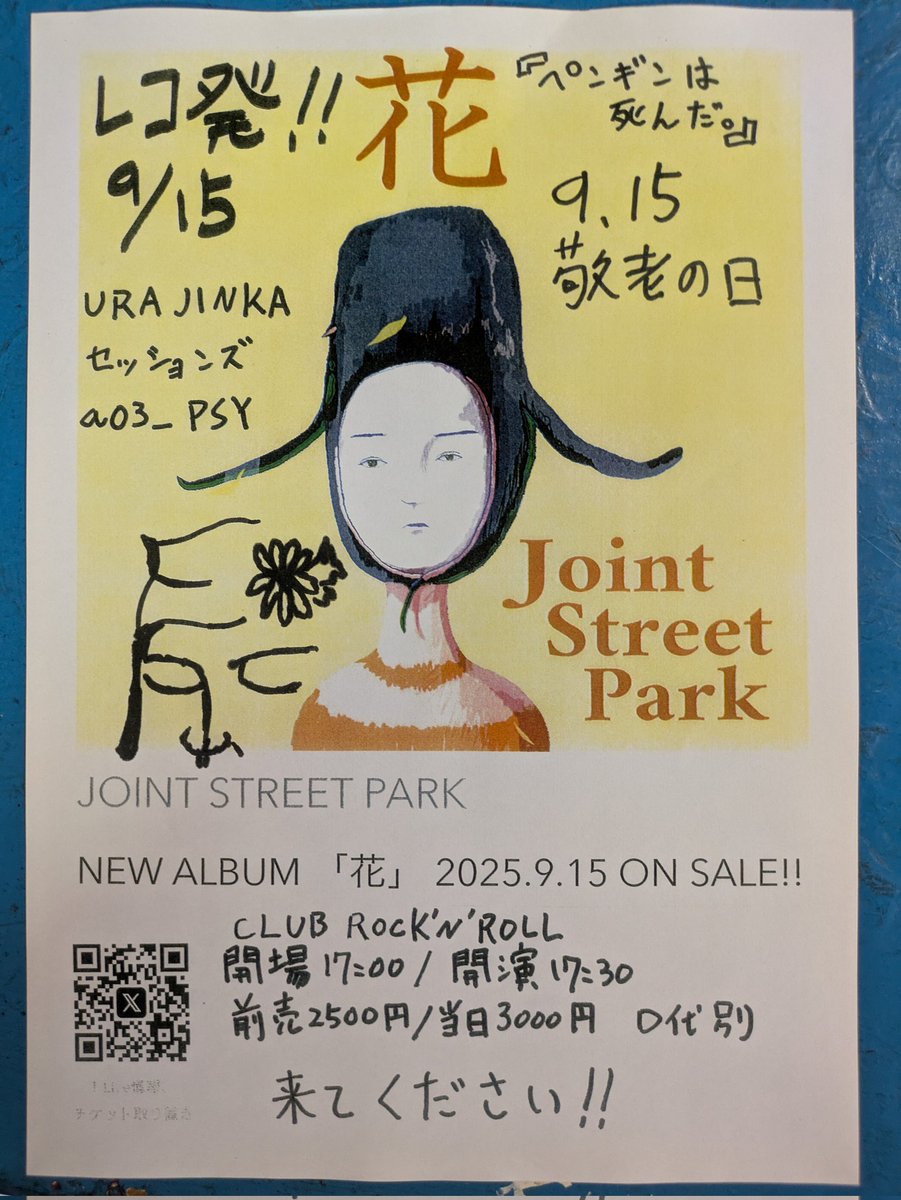 レコ発!!
9/15
花
『ペンギンは
死んだ。』
9.15
敬老の日
URA JINKA
セッションズ
a03_PSY
Joint
Street
Park
JOINT STREET PARK
NEW ALBUM 「花」 2025.9.15 ON SALE!!
CLUB ROCK'N'ROLL
開場17:00/開演17:30
前売2500円/当日3000円 D代別
チケット取り置き
来てください!!